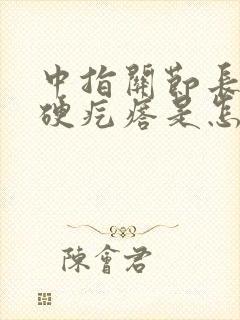 中指關節長
硬疙瘩是怎
陳會君